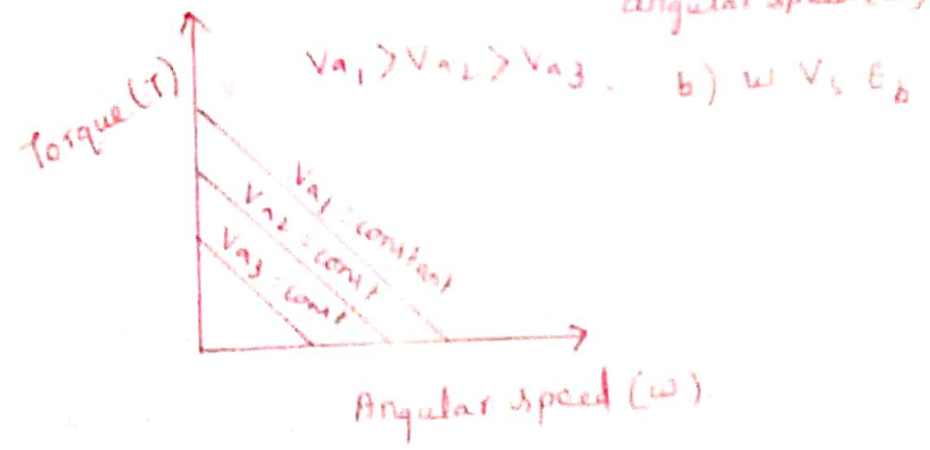 angular speed (ω)
Va1 > Va2 > Va3. b) w Vs Eb
Torque (T)
Va1 = constant
Va2 = const
Va3 = const
Angular speed (ω)